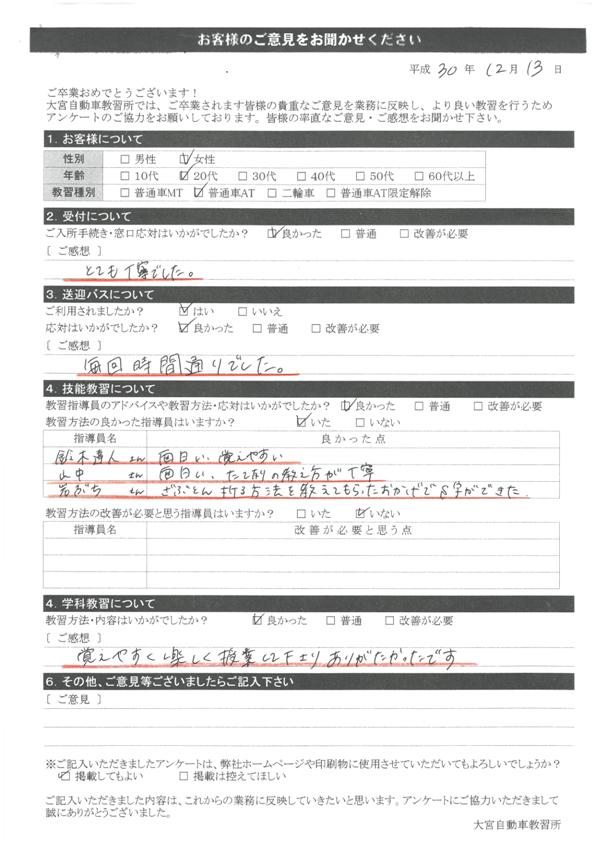 お客様のご意見をお聞かせください
平成 30 年 12 月 13 日
ご卒業おめでとうございます！
大宮自動車教習所では、ご卒業されます皆様の貴重なご意見を業務に反映し、より良い教習を行うため
アンケートのご協力をお願いしております。皆様の率直なご意見・ご感想をお聞かせ下さい。
1. お客様について
性別 □ 男性 ☑ 女性
年齢 □ 10代 ☑ 20代 □ 30代 □ 40代 □ 50代 □ 60代以上
教習種別 □ 普通車MT ☑ 普通車AT □ 二輪車 □ 普通車AT限定解除
2. 受付について
ご入所手続き・窓口応対はいかがでしたか？ ☑ 良かった □ 普通 □ 改善が必要
［ ご感想 ］
とても丁寧でした。
3. 送迎バスについて
ご利用されましたか？ ☑ はい □ いいえ
応対はいかがでしたか？ ☑ 良かった □ 普通 □ 改善が必要
［ ご感想 ］
毎回時間通りでした。
4. 技能教習について
教習指導員のアドバイスや教習方法・応対はいかがでしたか？ ☑ 良かった □ 普通 □ 改善が必要
教習方法の良かった指導員はいますか？ ☑ いた □ いない
指導員名 良かった点
鈴木達人 さん 面白い、覚えやすい
山中 さん 面白い、たとえの教え方が丁寧
岩ぶち さん ざぶとん 折る方法を教えてもらったおかげでS字ができた
教習方法の改善が必要と思う指導員はいますか？ □ いた ☑ いない
指導員名 改善が必要と思う点
4. 学科教習について
教習方法・内容はいかがでしたか？ ☑ 良かった □ 普通 □ 改善が必要
［ ご感想 ］
覚えやすく楽しく授業して下さりありがたかったです
6. その他、ご意見等ございましたらご記入下さい
［ ご意見 ］
※ご記入いただきましたアンケートは、弊社ホームページや印刷物に使用させていただいてもよろしいでしょうか？
☑ 掲載してもよい □ 掲載は控えてほしい
ご記入いただきました内容は、これからの業務に反映していきたいと思います。アンケートにご協力いただきまして
誠にありがとうございました。
大宮自動車教習所